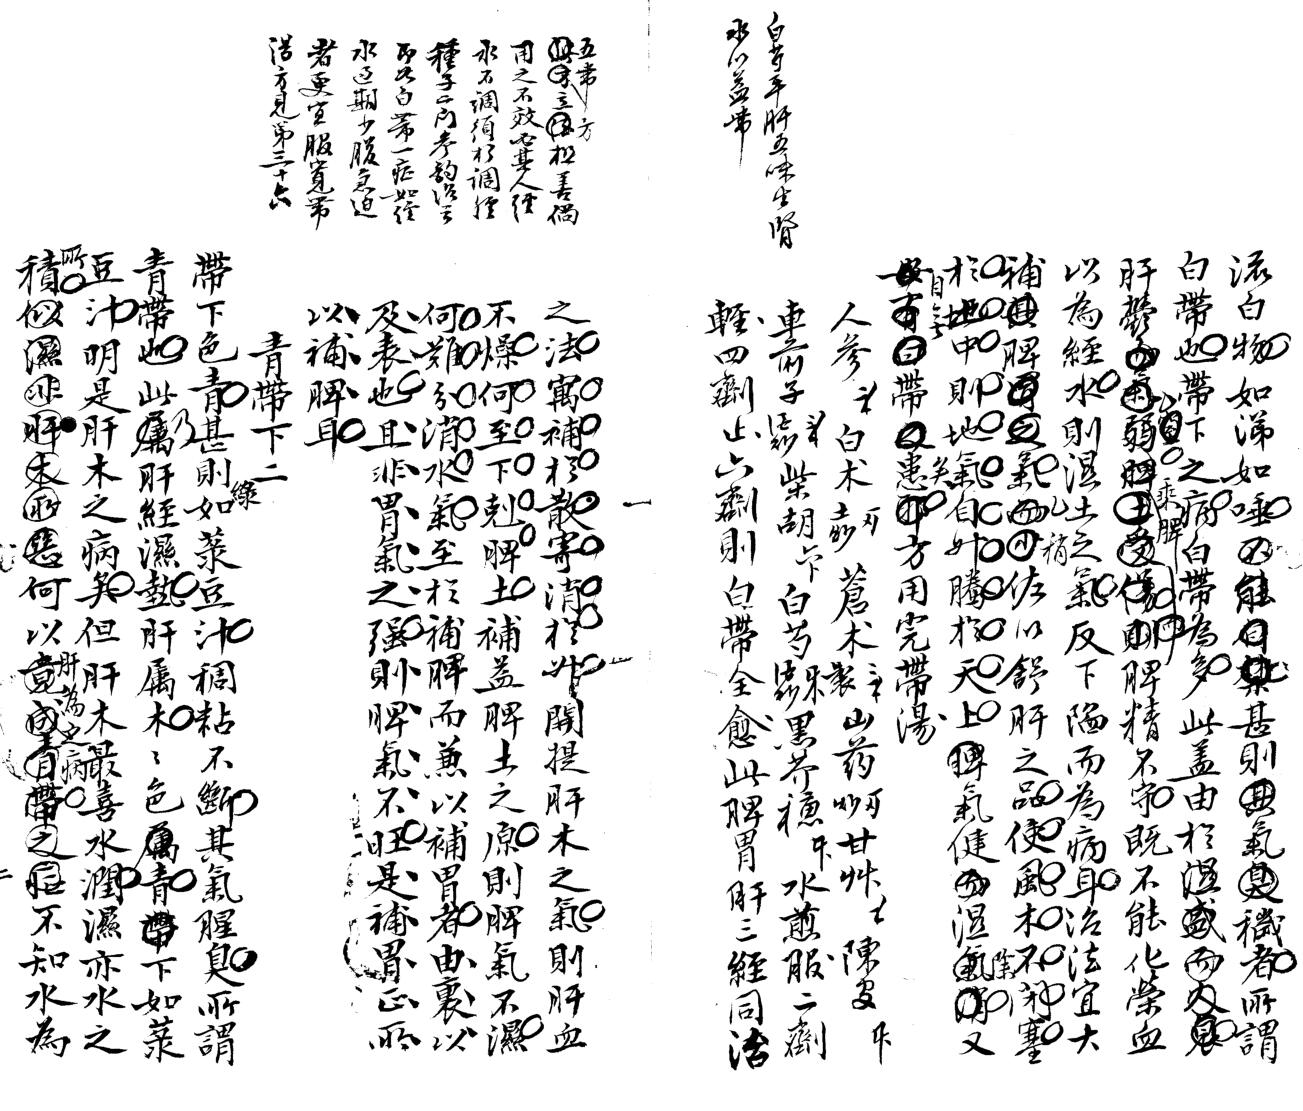 白芍平肝五味生腎
水以益帶
流白物如涕如唾不能自禁甚則其氣臭穢者所謂
白帶也帶下之病白帶為多此蓋由於濕盛而火衰
肝鬱而氣弱脾土受傷則脾精不守既不能化榮血
以為經水則濕土之氣反下陷而為病耳治法宜大
補其脾胃之氣而少佐以舒肝之品使風木不閉塞
於地中則地氣自升騰於天上脾氣健而濕氣消又
自無
白帶之患矣方用完帶湯
人參 白术 蒼术 山药 甘艸 陳皮
車前子 柴胡 白芍 黑芥穗 水煎服二劑
輕四劑止六劑則白帶全愈此脾胃肝三經同治
五帶方
用之不效必其人經
水不調須於調經
種子二門參酌治之
即如白帶一症如經
水過期少腹急迫
者更宜服寬帶
湯方見第三十六
之法寓補於散寄清於升開提肝木之氣則肝血
不燥何至下剋脾土補益脾土之原則脾氣不濕
何難分消水氣至於補脾而兼以補胃者由裏以
及表也且非胃氣之强則脾氣不旺是補胃正所
以補脾耳
青帶下二
帶下色青甚則如菉豆汁稠粘不斷其氣腥臭所謂
青帶也此乃肝經濕熱肝屬木木色屬青帶下如菉
豆汁明是肝木之病矣但肝木最喜水潤濕亦水之
積似濕非肝木所惡何以竟成青帶之症不知水為